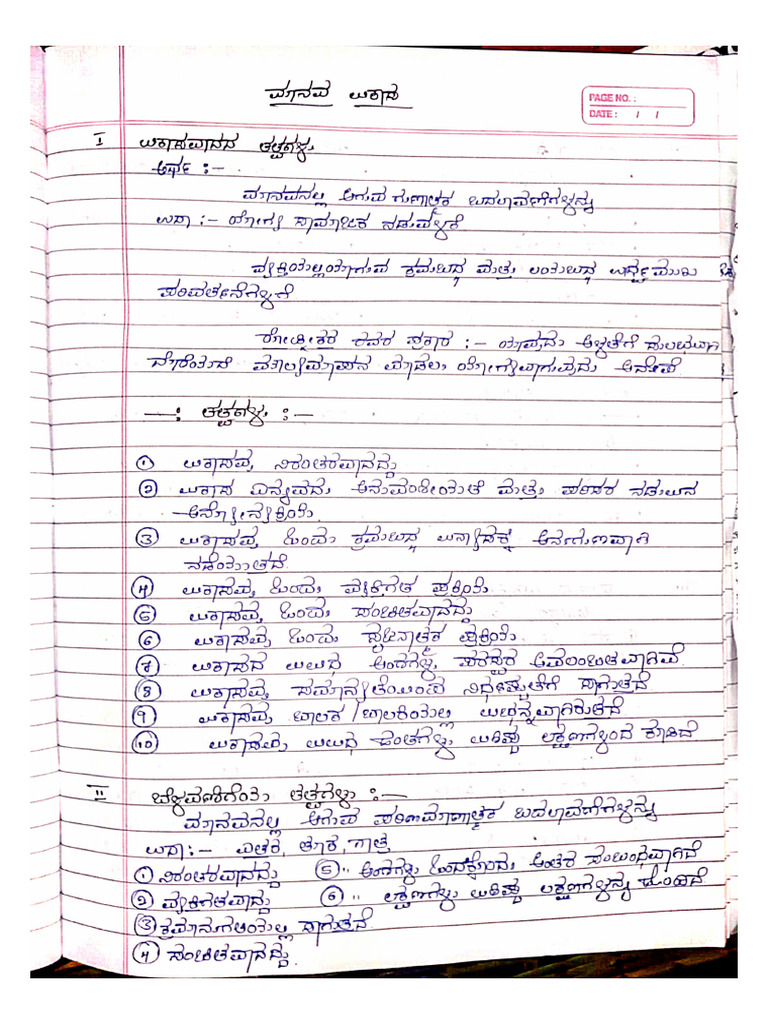 ಮಾನವ ವಿಕಾಸ
PAGE NO. :
DATE : / /
I ವಿಕಾಸವಾದದ ತತ್ವಗಳು
ಅರ್ಥ :-
ಮಾನವನಲ್ಲಿ ಆಗುವ ಗುಣಾತ್ಮಕ ಬದಲಾವಣೆಗಳನ್ನು
ಉದಾ :- ಯೋಗ್ಯ ಸಾಮಾಜಿಕ ನಡುವಳಿಕೆ
ವ್ಯಕ್ತಿಯಲ್ಲಿಯಾಗುವ ಕ್ರಮಬದ್ಧ ಮತ್ತು ಲಯಬದ್ಧ
ಪರಿವರ್ತನೆಗಳಿಕೆ
ಇವರ ಪ್ರಕಾರ :- ಯಾವುದು ಅಳತೆಗೆ
ಮೌಲ್ಯಮಾಪನ ಮಾಡಲು ಯೋಗ್ಯವಾಗುವುದು
—: ತತ್ವಗಳು :—
1 ವಿಕಾಸವು ನಿರಂತರವಾದದ್ದು
2 ವಿಕಾಸ ಎನ್ನುವದು ಅನುವಂಶೀಯತೆ ಮತ್ತು ಪರಿಸರ ನಡುವಿನ
ಅನ್ಯೋನ್ಯಕ್ರಿಯೆ.
3 ವಿಕಾಸವು ಒಂದು ಕ್ರಮಬದ್ಧ ವಿನ್ಯಾಸಕ್ಕೆ ಅನುಗುಣವಾಗಿ
ನಡೆಯುತ್ತದೆ.
4 ವಿಕಾಸವು ಒಂದು ವ್ಯಕ್ತಿಗತ ಪ್ರಕ್ರಿಯೆ
5 ವಿಕಾಸವು ಒಂದು ಸಂಚಿತವಾದದ್ದು
6 ವಿಕಾಸವು ಒಂದು ಸೃಜನಾತ್ಮಕ ಪ್ರಕ್ರಿಯೆ
7 ವಿಕಾಸದ ವಿವಿಧ ಅಂಗಗಳು ಪರಸ್ಪರ ಅವಲಂಬಿತವಾಗಿವೆ
8 ವಿಕಾಸವು ಸಮಾನ್ಯತೆಯಿಂದ ನಿರ್ಧಿಷ್ಟತೆಗೆ ಸಾಗುತ್ತದೆ
9 ವಿಕಾಸವು ಬಾಲಕ/ಬಾಲಕಿಯಲ್ಲಿ ವಿಭಿನ್ನವಾಗಿರುತ್ತದೆ
10 ವಿಕಾಸವು ವಿವಿಧ ಹಂತಗಳು ವಿಶಿಷ್ಟ ಲಕ್ಷಣಗಳಿಂದ ಕೂಡಿದೆ
II ಬೆಳವಣಿಗೆಯ ತತ್ವಗಳು :—
ಮಾನವನಲ್ಲಿ ಆಗುವ ಪರಿಣಾಮಾತ್ಮಕ ಬದಲಾವಣೆಗಳನ್ನು
ಉದಾ :- ಎತ್ತರ, ತೂಕ, ಗಾತ್ರ
1 ನಿರಂತರವಾದದ್ದು 5 " ಅಂಗಗಳು ಅಂತರ ಸಂಬಂಧವಾಗಿದೆ
2 ವ್ಯಕ್ತಿಗತವಾದ್ದು 6 " ಲಕ್ಷಣಗಳು ವಿಶಿಷ್ಟ ಲಕ್ಷಣಗಳನ್ನು ಹೊಂದಿದೆ.
3 ಕ್ರಮಾನುಗತಿಯಲ್ಲಿ ಸಾಗುತ್ತದೆ.
4 ಸಂಚಿತವಾದದ್ದು.